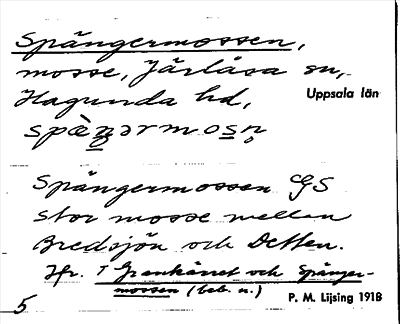 Spångermossen,
mosse, Järlåsa sn,
Hagunda hd, Uppsala län
Spångermossen CGS
stor mosse mellan
Bredsjön och Detten.
Jfr. T Grankärret och Spånger-
mossen (beb. n.)
5 P. M. Lijsing 1918